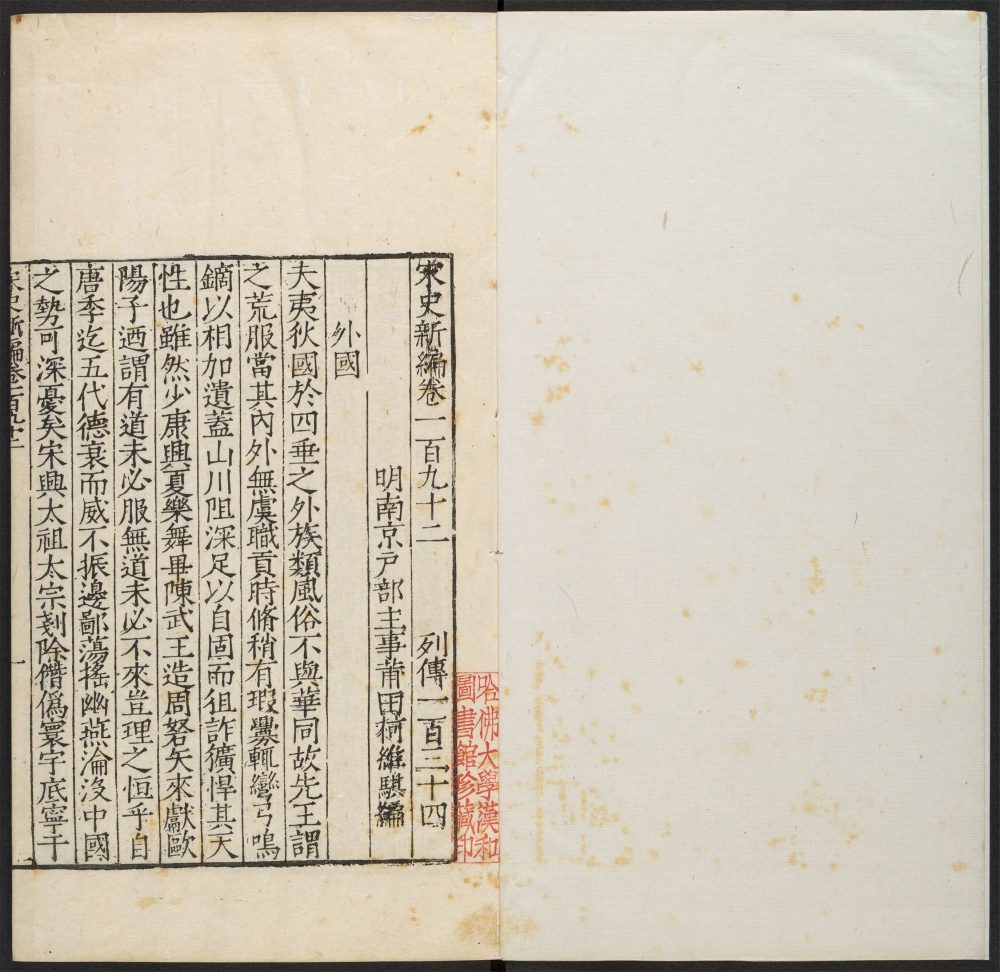 宋史新編卷一百九十二　列傳一百三十四
明南京戸部主事莆田柯維騏編
外國
夫夷狄國於四垂之外族類風俗不與華同故先王謂
之荒服當其內外無虞職貢時脩稍有瑕釁輒彎弓鳴
鏑以相加遺蓋山川阻深足以自固而狙詐獷悍其天
性也雖然少康興夏樂舞畢陳武王造周砮矢來獻歐
陽子迺謂有道未必服無道未必不來豈理之恒乎自
唐季迄五代德衰而威不振邊鄙蕩搖幽燕淪沒中國
之勢可深憂矣宋興太祖太宗剗除僭僞寰宇底寧于
宋史新編卷一百九十二
一
哈佛大學漢和
圖書館珍藏印